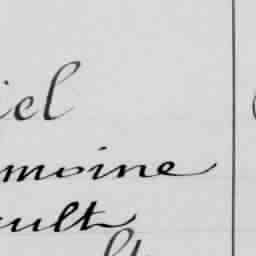 iel
moine
cult